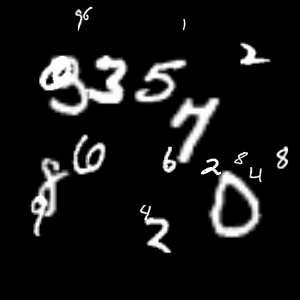 96 1
2
9 3 5
7
6 6 2 8 4 8
8
9 4 2 0